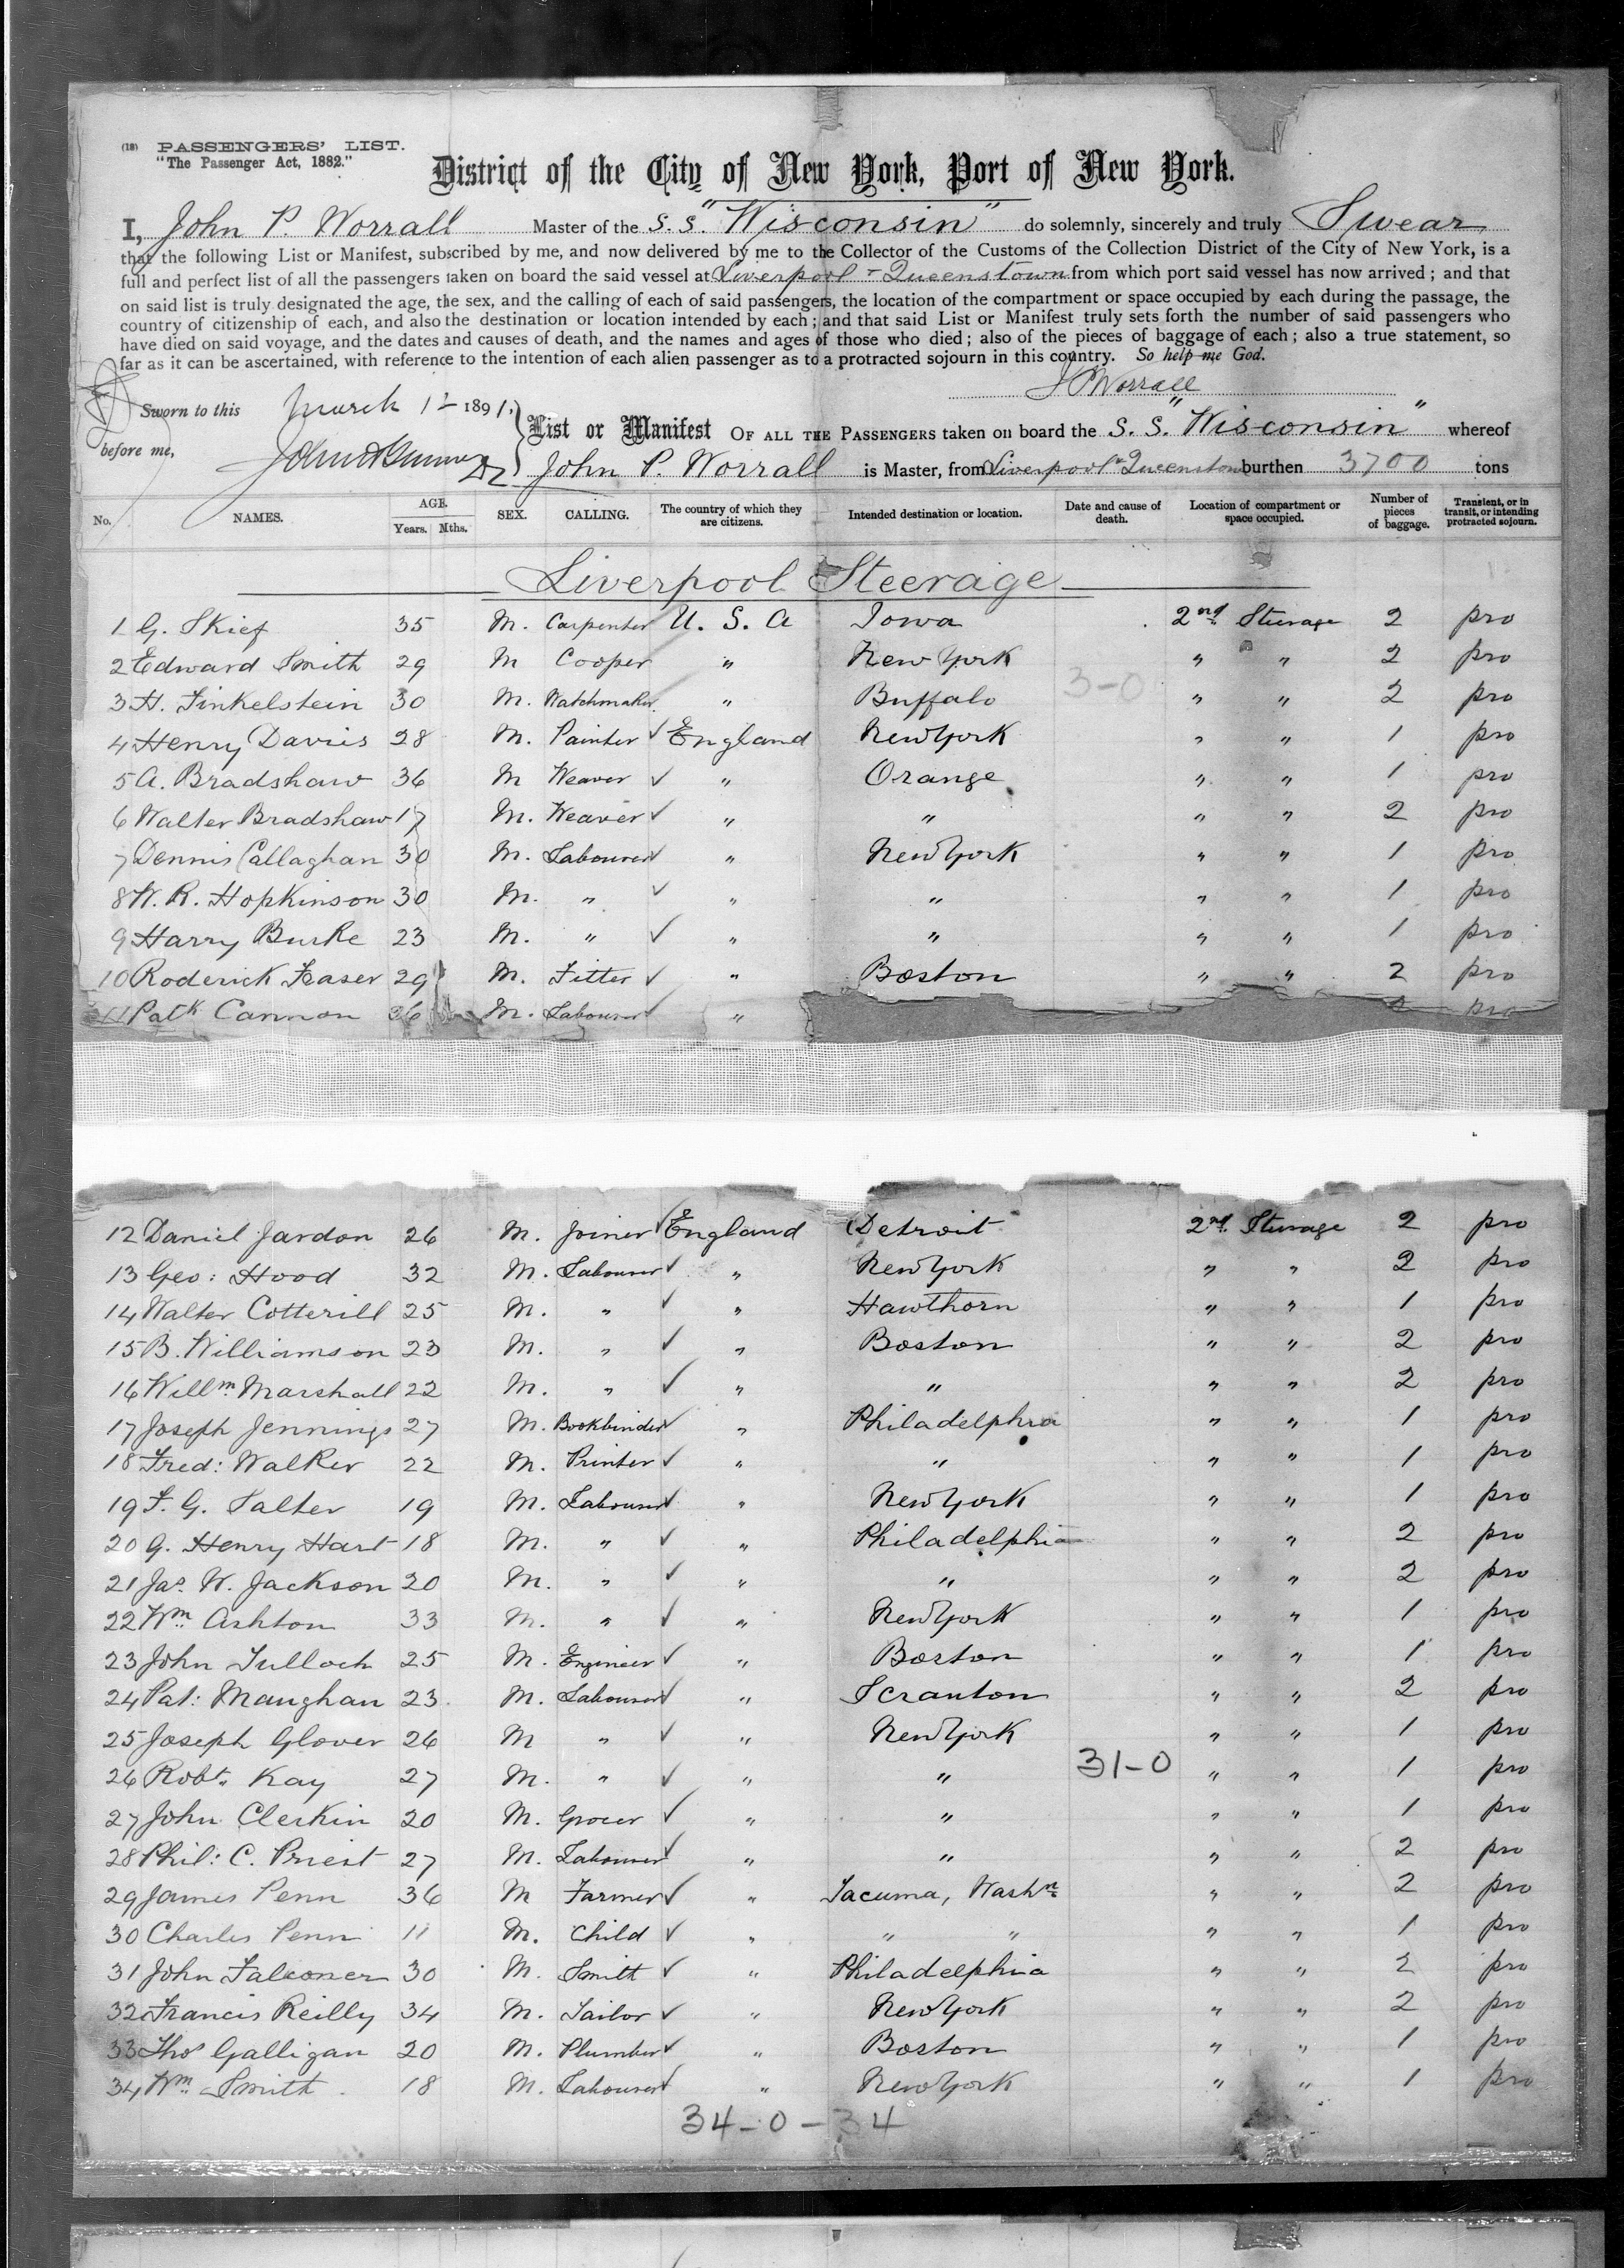 (18) PASSENGERS' LIST.
"The Passenger Act, 1882."
District of the City of New York, Port of New York.
I, John P. Worrall Master of the S.S. "Wisconsin" do solemnly, sincerely and truly Swear
that the following List or Manifest, subscribed by me, and now delivered by me to the Collector of the Customs of the Collection District of the City of New York, is a
full and perfect list of all the passengers taken on board the said vessel at Liverpool - Queenstown from which port said vessel has now arrived; and that
on said list is truly designated the age, the sex, and the calling of each of said passengers, the location of the compartment or space occupied by each during the passage, the
country of citizenship of each, and also the destination or location intended by each; and that said List or Manifest truly sets forth the number of said passengers who
have died on said voyage, and the dates and causes of death, and the names and ages of those who died; also of the pieces of baggage of each; also a true statement, so
far as it can be ascertained, with reference to the intention of each alien passenger as to a protracted sojourn in this country. So help me God.
J P Worrall
Sworn to this March 1891,
before me,
List or Manifest OF ALL THE PASSENGERS taken on board the S. S. "Wisconsin" whereof
John P. Worrall is Master, from Liverpool & Queenstown burthen 3700 tons
No. NAMES. AGE. Years. Mths. SEX. CALLING. The country of which they are citizens. Intended destination or location. Date and cause of death. Location of compartment or space occupied. Number of pieces of baggage. Transient, or in transit, or intending protracted sojourn.
Liverpool Steerage
1 G. Skief 35 M. Carpenter U. S. A Iowa 2nd Steerage 2 pro
2 Edward Smith 29 M Cooper " New York " " 2 pro
3-0
3 H. Finkelstein 30 M. Watchmaker " Buffalo " " 2 pro
4 Henry Davies 28 M. Painter ✓ England New York " " 1 pro
5 A. Bradshaw 36 M Weaver ✓ " Orange " " 1 pro
6 Walter Bradshaw 17 M. Weaver ✓ " " " " 2 pro
7 Dennis Callaghan 30 M. Labourer ✓ " New York " " 1 pro
8 W. R. Hopkinson 30 M. " ✓ " " " " 1 pro
9 Harry Burke 23 M. " ✓ " " " " 1 pro
10 Roderick Feaser 29 M. Fitter ✓ " Boston " " 2 pro
11 Patk Cannon 36 M. Labourer ✓ " pro
12 Daniel Jardon 26 M. Joiner ✓ England Detroit 2nd Steerage 2 pro
13 Geo: Hood 32 M. Labourer ✓ " New York " " 2 pro
14 Walter Cotterill 25 M. " ✓ " Hawthorn " " 1 pro
15 B. Williamson 23 M. " ✓ " Boston " " 2 pro
16 Willm Marshall 22 M. " ✓ " " " " 2 pro
17 Joseph Jennings 27 M. Bookbinder ✓ " Philadelphia " " 1 pro
18 Fred: Walker 22 M. Printer ✓ " " " " 1 pro
19 F. G. Salter 19 M. Labourer ✓ " New York " " 1 pro
20 G. Henry Hart 18 M. " ✓ " Philadelphia " " 2 pro
21 Jas. W. Jackson 20 M. " ✓ " " " " 2 pro
22 Wm. Ashton 33 M. " ✓ " New York " " 1 pro
23 John Tulloch 25 M. Engineer ✓ " Boston " " 1 pro
24 Pat: Maughan 23 M. Labourer ✓ " Scranton " " 2 pro
25 Joseph Glover 26 M " ✓ " New York " " 1 pro
26 Robt. Kay 27 M. " ✓ " " 31-0 " " 1 pro
27 John Clerkin 20 M. Grocer ✓ " " " " 1 pro
28 Phil: C. Priest 27 M. Labourer ✓ " " " " 2 pro
29 James Penn 36 M Farmer ✓ " Tacuma, Washn " " 2 pro
30 Charles Penn 11 M. Child ✓ " " " " " 1 pro
31 John Falconer 30 M. Smith ✓ " Philadelphia " " 2 pro
32 Francis Reilly 34 M. Tailor ✓ " New York " " 2 pro
33 Thos Galligan 20 M. Plumber ✓ " Boston " " 1 pro
34 Wm Smith 18 M. Labourer ✓ " New York " " 1 pro
34-0-34